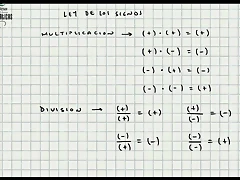 LEY DE LOS SIGNOS
MULTIPLICACION → (+) · (+) = (+)
(+) · (-) = (-)
(-) · (+) = (-)
(-) · (-) = (+)
DIVISION → (+)/(+) = (+) (+)/(-) = (-)
(-)/(+) = (-) (-)/(-) = (+)